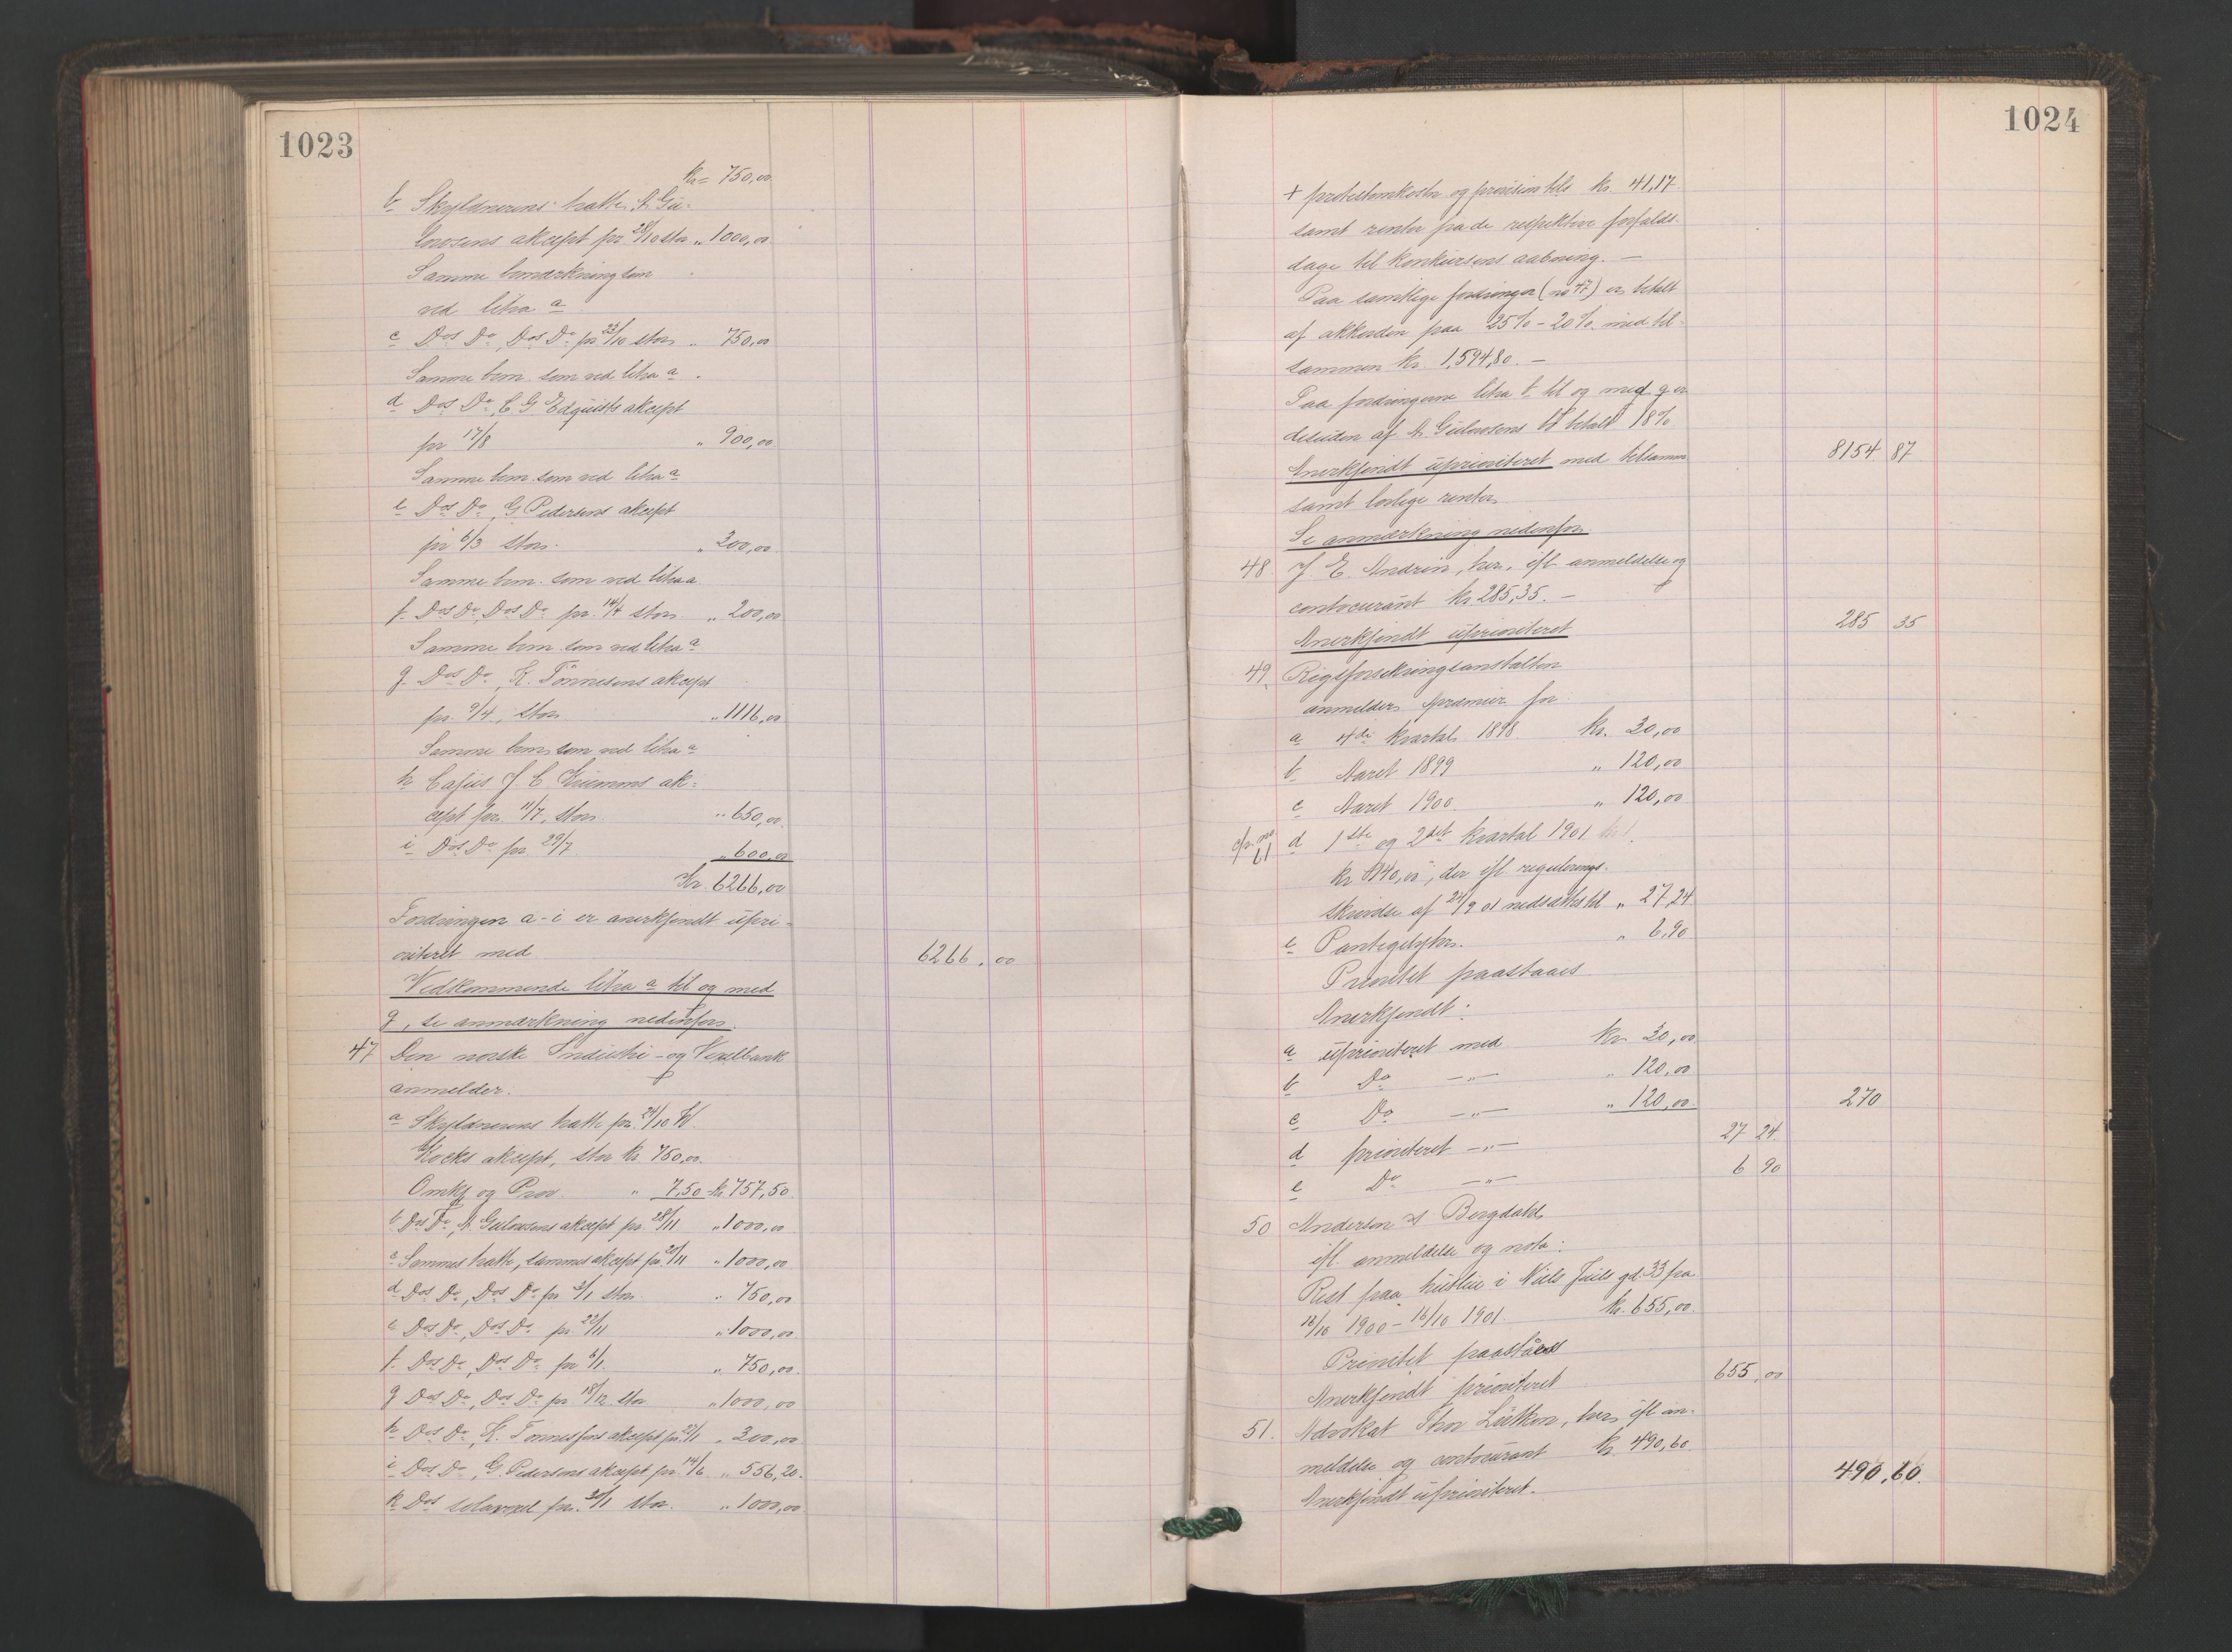 1023
Kr= 750,00
b Skyldnerens tratte, A. Gu-
lovsens aksept pr 28/10 stor „ 1000,00
Samme bemærkning som
ved litra a
c Dos Do, Dos Do pr 23/10 stor „ 750,00
Samme bem. som ved litra a.
d Dos Do, C. G Edquists aksept
pr 17/8 „ 900,00
Samme bem. som ved litra a
e Dos Do, G Pedersens aksept
pr 6/3 stor. „ 300,00
Samme bem. som ved litra a
f. Dos Do Dos Do pr. 14/4 stor. „ 200,00
Samme bem. som ved litra a
g. Dos Do, K. Tönnesens aksept
pr. 9/4, stor „ 1116,00
Samme bem. som ved litra a
h Cajus J C Krumms ak-
cept pr. 11/7, stor. „ 650,00
i Dos Do pr 29/7 „ 600,00
Kr 6266,00
Fordringen a-i er anerkjendt upri-
oriteret med 6266,00
Vedkommende litra a til og med
g, se anmærkning nedenfor.
47 Den norske Industri- og Vexelbank
anmelder.
a Skyldnerens tratte pr. 24/10 H.
Kocks aksept, stor kr. 750,00
Omkg og Prov. „ 7,50 kr. 757,50
b Dos Do, A. Gulovsens aksept pr 28/11 „ 1000,00
c Sammes tratte, sammes aksept pr. 20/11 „ 1000,00
d Dos Do, Dos Do pr 3/1 stor. „ 750,00
e Dos Do, Dos Do pr. 22/11 „ 1000,00
f. Dos Do, Dos Do pr 6/1. „ 750,00
g Dos Do, Dos Do pr 18/12 stor „ 1000,00
h Dos Do, K. Tönnesens aksept pr. 27/1 „ 300,00
i Dos Do, G. Pedersens aksept pr. 14/6 „ 556,20
k Dos solavexel pr. 30/1 stor. „ 1000,00
1024
+ protestomkostn og provision tils kr. 41,17
samt renter fra de respektive forfalds-
dage til konkursens aabning. –
Paa samtlige fordringer (no 47) er betalt
af akkorden paa 25% - 20% med til-
sammen kr. 1,594,80. –
Paa fordringerne litra b til og med g er
desuden af A. Gulovsens bo betalt 18%
Anerkjendt uprioriteret med tilsammen 8154 87
samt lovlige renter
Se anmærkning nedenfor.
48 J. E. Andrén, her, ifl. anmeldelse og
contocurant kr 285,35. –
Anerkjendt uprioriteret 285 35
49. Rigsforsikringsanstalten
anmelder præmier for
a 4de kvartal 1898. kr. 30,00
b Aaret 1899 „ 120,00
c Aaret 1900. „ 120,00
cfr. no 61 d 1ste og 2det kvartal 1901
kr 140,00, der ifl. regulerings-
skrivelse af 24/9 01 nedsættes til „ 27,24
e Pantegebyhr. „ 6,90
Prioritet paastaaes
Anerkjendt:
a uprioriteret med kr. 30,00
b Do –„– „ 120,00
c Do –„– „ 120,00 270
d prioriteret –„– 27 24
e Do –„– 6 90
50 Andersen & Bergdahl
ifl. anmeldelse og nota:
Rest paa husleie i Niels Juels gd. 33 fra
16/10 1900 – 16/10 1901. kr. 655,00
Prioritet paastaaes
Anerkjendt prioriteret 655,00
51. Advokat Thor Lütken, her, ifl. an-
meldelse og contocurant kr. 490,60
Anerkjendt uprioriteret. 490,60